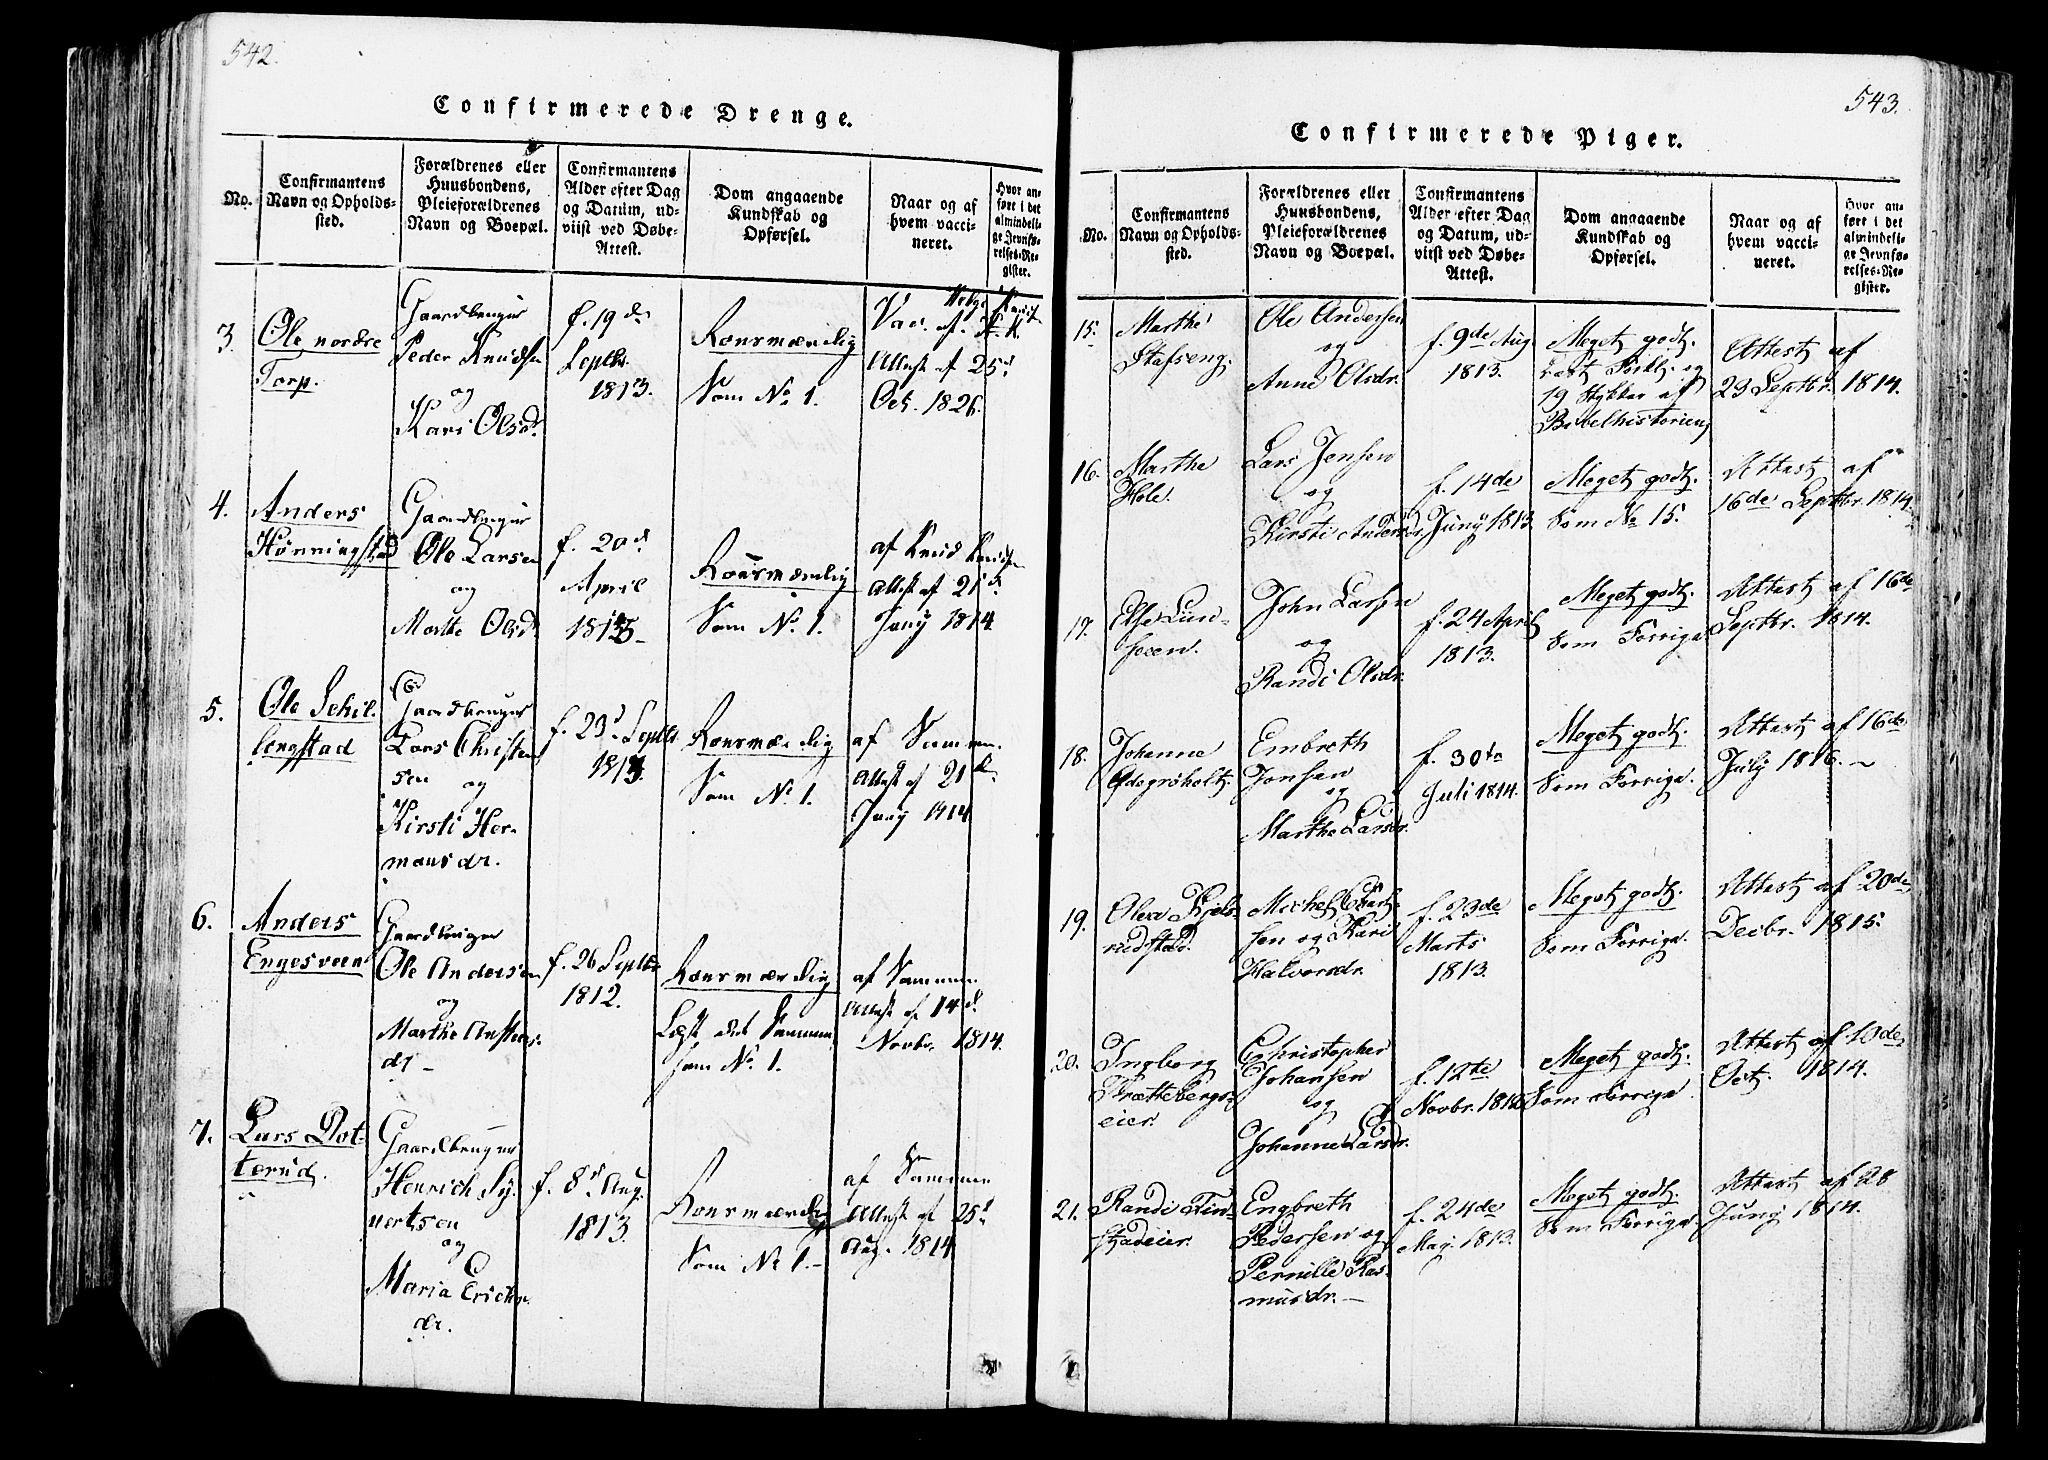 542.
Confirmerede Drenge.
No.
Confirmantens
Navn og Opholds-
sted.
Forældrenes eller
Huusbondens,
Pleieforældrenes
Navn og Boepæl.
Confirmantens
Alder efter Dag
og Datum, ud-
viist ved Døbe-
Attest.
Dom angaaende
Kundskab og
Opførsel.
Naar og af
hvem vacci-
neret.
Hvor an-
ført i det
almindeli-
ge Jevnfø-
relses-Re-
gister.
3.
Ole nordre
Torp.
Gaardbruger
Peder Knudsen
og
Kari Olsd.
f. 19de
Septbr
1813.
Roesværdig
Som No 1.
Vac.
Attest af 25d
Oct. 1826.
4.
Anders
Hønningstad
Gaardbruger
Ole Larsen
og
Marthe Olsd.
f. 20d.
April
Roesværdig
Som No. 1.
af Knud Knudsen
Attest af 21d.
Juny 1814
5.
Ole Schil-
lengstad
Gaardbruger
Lars Christen
sen og
Kirsti Her-
mansdr.
f. 23d. Septbr
1813.
Roesværdig
Som No. 1.
af Samme
Attest af 21d.
Juny 1814
6.
Anders
Engesveen
Gaardbruger
Ole Andersen
og
Marthe
dr -
f. 26 Septbr
1812.
Roesværdig
Læst det Samme
som No. 1.
af Samme
Attest af 14d.
Novbr. 1814.
7.
Lars Dot-
terud.
Gaardbruger
Henrich Sy-
vertsen
og
Maria Erichs
dr.
f. 8d. Aug.
1813.
Roesværdig
Som No 1. -
af Samme
Attest af 25d
Aug. 1814
543.
Confirmerede Piger.
No.
Confirmantens
Navn og Opholds-
sted.
Forældrenes eller
Huusbondens,
Pleieforældrenes
Navn og Boepæl.
Confirmantens
Alder efter Dag
og Datum, ud-
viist ved Døbe-
Attest.
Dom angaaende
Kundskab og
Opførsel.
Naar og af
hvem vacci-
neret.
Hvor an-
ført i det
almindeli-
ge Jevnfø-
relses-Re-
gister.
15.
Marthe
Stafseng.
Ole Andersen
og
Anne Olsdr.
f. 9de Aug.
1813.
Meget godt.
Læst Forkl. og
19 Stykker af
Bibelhistorien
Attest af
23 Septbr. 1814.
16.
Marthe
Hole.
Lars Jensen
og
Kirsti Andersdr
f. 14de
Juny 1813
Meget godt.
Som No 15.
Attest af
16de Septbr 1814.
17.
Else Lun-
John Larsen
og
Randi Olsdr.
f. 24 April
1813.
Meget godt.
Som Forrige
Attest af 16de
Septbr. 1814.
18.
Johanne
Ødegrøholt.
Embreth
Jonsen
og
Marthe Larsdr.
f. 30te
Juli 1814.
Meget godt.
Som Forrige.
Attest af 16de
July 1816. -
19.
Olea Kjels-
rudstad.
Michel
sen og Kari
Halvorsdr.
f. 23de
Marts
1813.
Meget godt.
Som Forrige.
Attest af 20de
Decbr. 1815.
20.
Ingborg
Frættebergs-
eier.
Christopher
Johansen
og
Johanne Larsdr.
f. 12te
Novbr.
Meget godt.
Som Forrige
Attest af 10de
Oct. 1814.
21.
Randi Fin-
stadeier.
Engbreth
Pedersen og
Pernille Ras-
musdr. -
f. 24de
May. 1813.
Meget godt.
Som Forrige.
Attest af 28
Juny 1814.